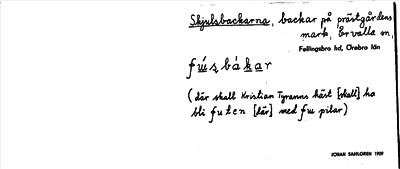 Skjulsbackarna, backar på prästgårdens
mark, Ervalla sn,
Fellingsbro hd, Örebro län
(där skall Kristian Tyranns häst [skall] ha
bli futen [där] med fu pilar)
JÖRAN SAHLGREN 1909